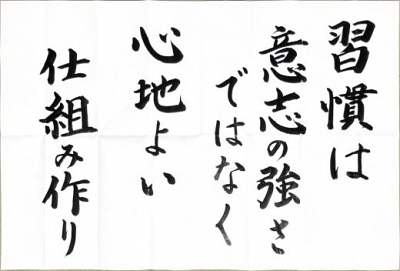 習慣は
意志の強さ
ではなく
心地よい
仕組み作り